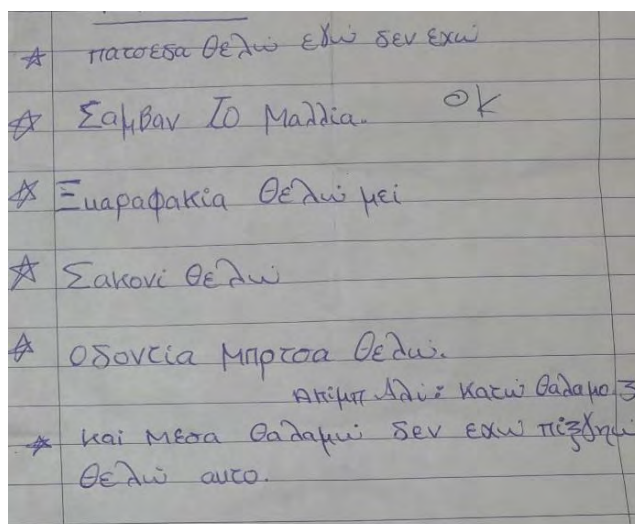 πατσεδα θελω εδω δεν εχω
Σαμβαν Το Μαλλια. OK
Ξυαραφακια θελω μει
Σακονι θελω
Οδοντια Μπρτσα θελω.
Ακιμπ Αλι: Κατω θαλαμο 3
και μεσα θαλαμω δεν εχω
θελω αυτο.